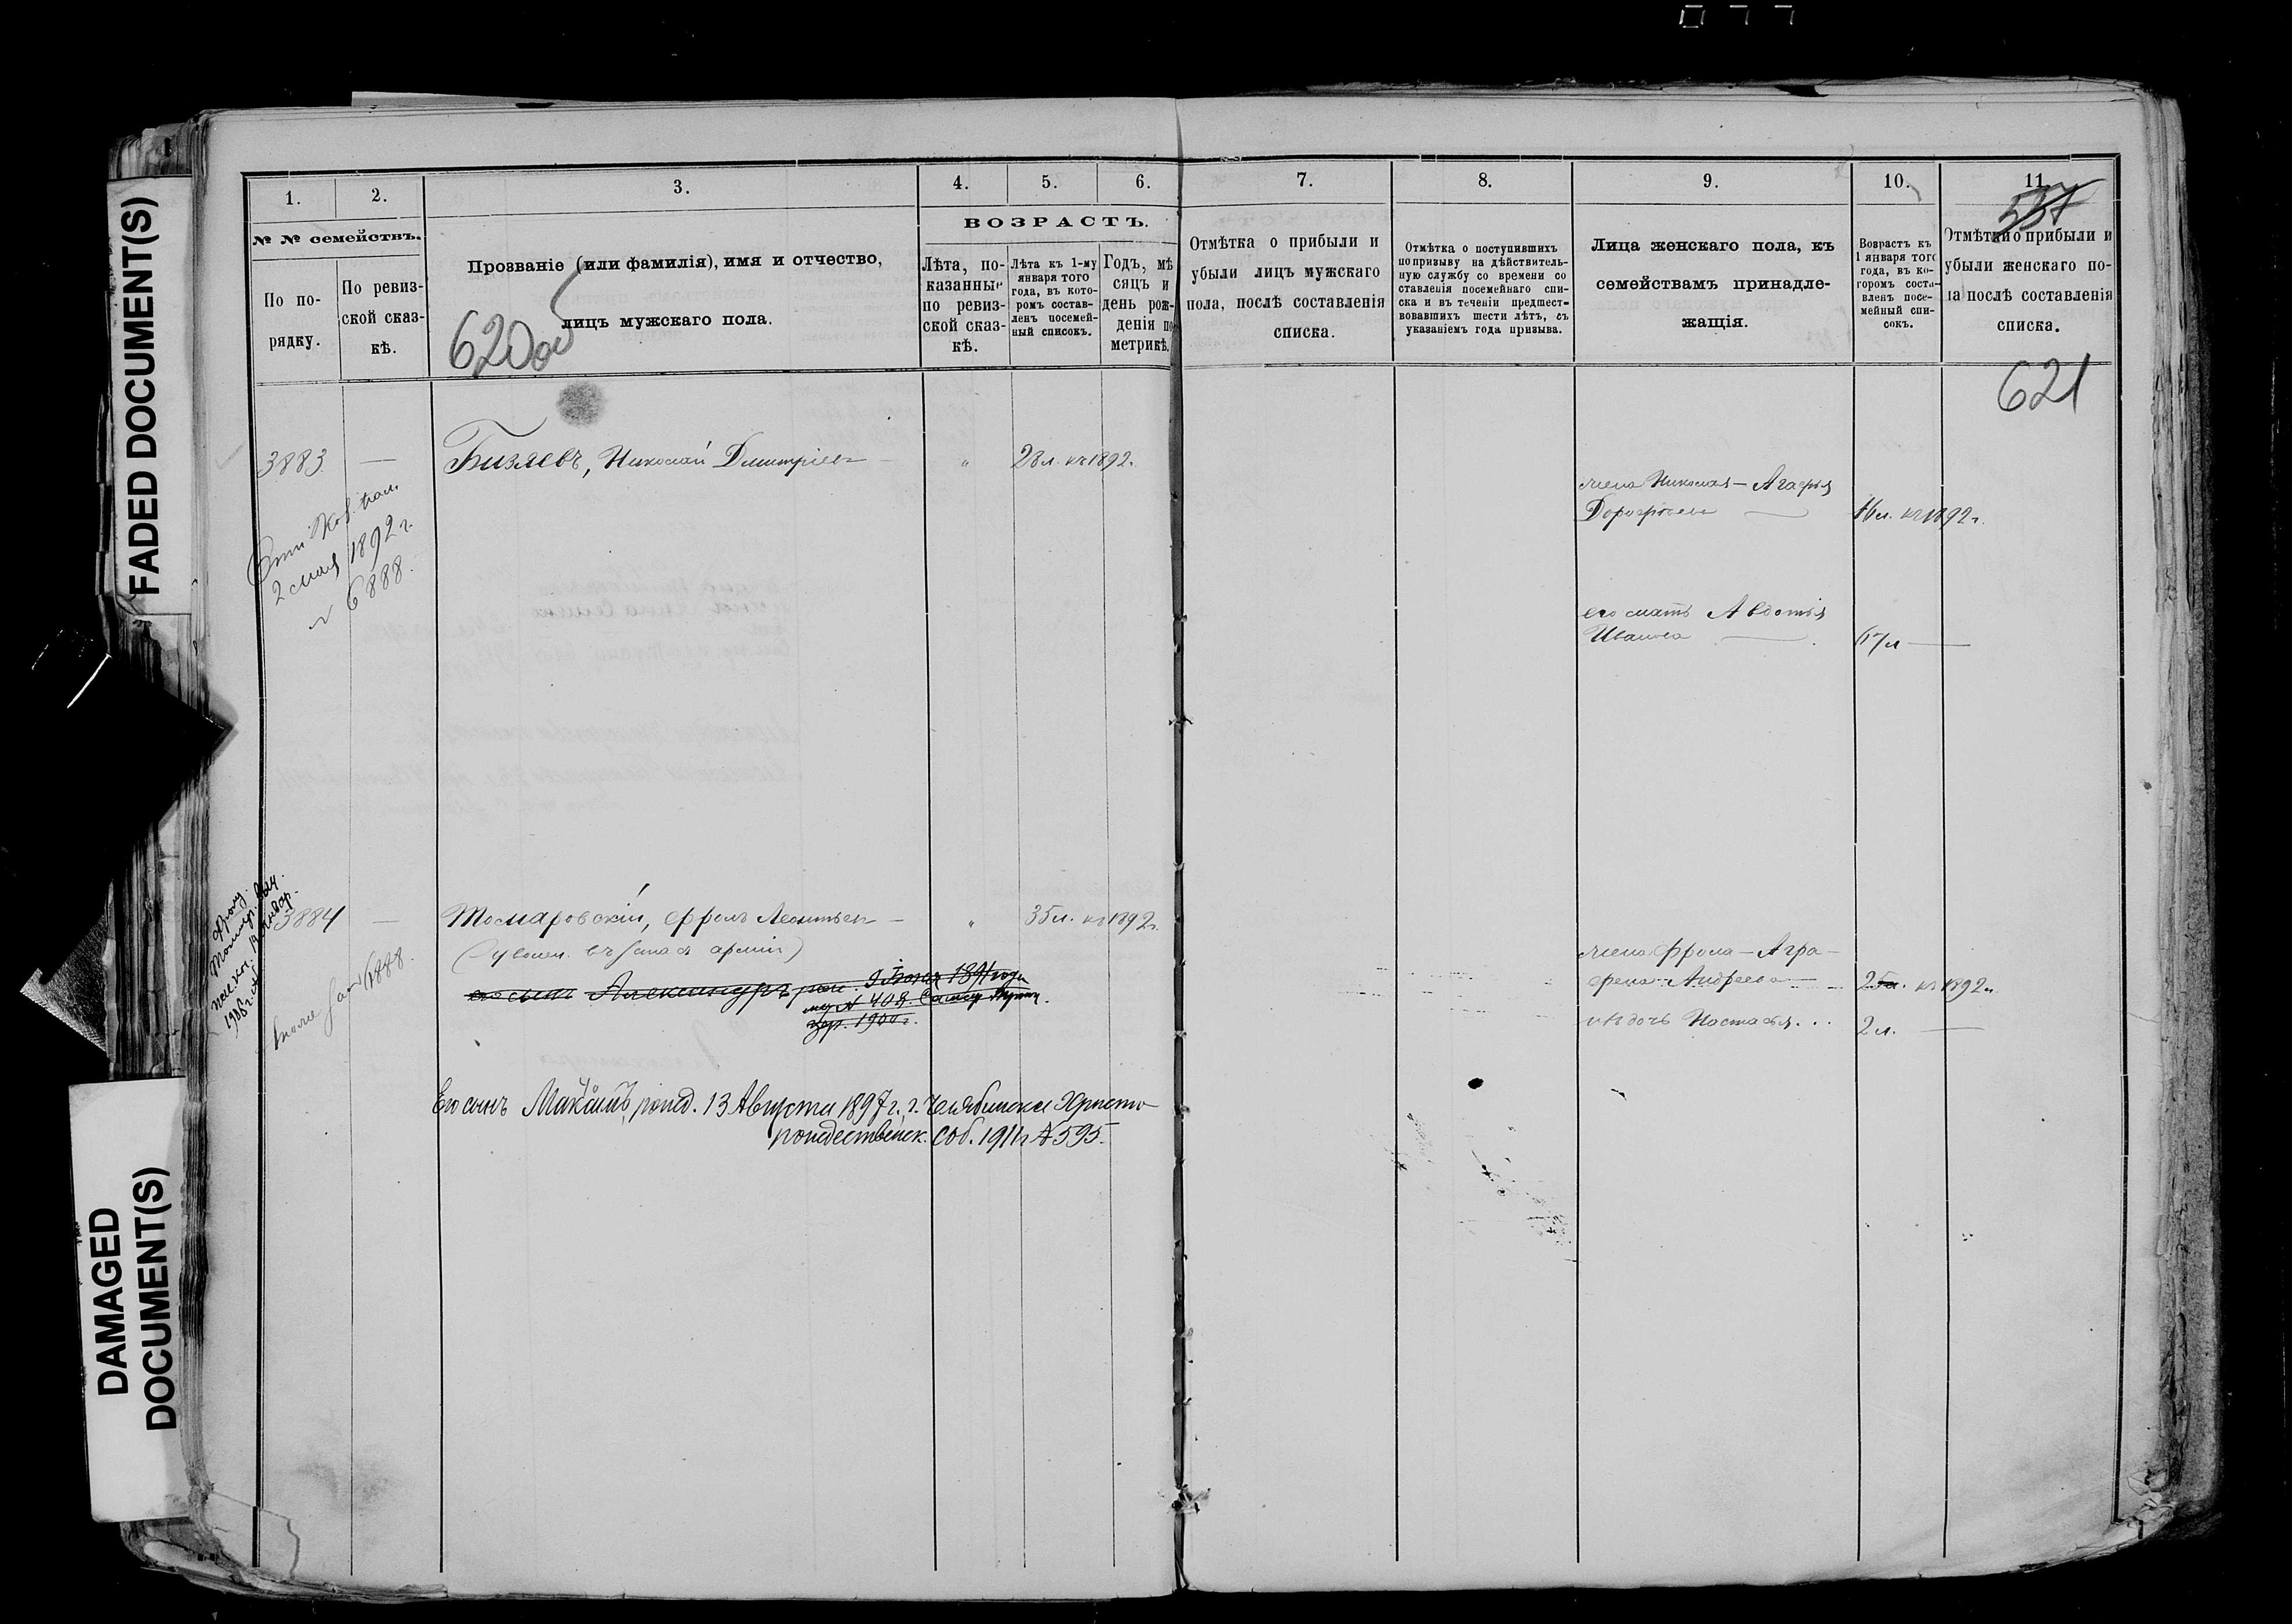 FADED DOCUMENT(S)
DAMAGED
DOCUMENT(S)
1.
2.
3.
4.
5.
6.
7.
8.
9.
10.
11.
557
№ № семействъ.
По по-
рядку.
По ревиз-
ской сказ-
кѣ.
Прозваніе (или фамилія), имя и отчество,
лицъ мужскаго пола.
620 об
ВОЗРАСТЪ.
Лѣта, по-
казанные
по ревиз-
ской сказ-
кѣ.
Лѣта къ 1-му
января того
года, въ кото-
ромъ состав-
ленъ посемей-
ный списокъ.
Годъ, мѣ
сяцъ и
день рож-
денія по
метрикѣ.
Отмѣтка о прибыли и
убыли лицъ мужскаго
пола, послѣ составленія
списка.
Отмѣтка о поступившихъ
по призыву на дѣйствитель-
ную службу со времени со
ставленія посемейнаго спи-
ска и въ теченіи предшест-
вовавшихъ шести лѣтъ, съ
указаніемъ года призыва.
Лица женскаго пола, къ
семействамъ принадле-
жащія.
Возрастъ къ
1 января того
года, въ ко-
торомъ соста-
вленъ посе-
мейный спи-
сокъ.
Отмѣтки о прибыли и
убыли женскаго по-
ла послѣ составленія
списка.
621
3883 — Бизяевъ, Николай Дмитріев — " 28 л. къ 1892 г.
2 мая 1892 г.
№ 6888.
жена Николая — Агафья
Дорофѣева — 16 л. къ 1892 г.
его мать Авдотья
Иванова — 67 л —
3884 — Томаровскій, Фролъ Леонтьев — " 35 л. къ 1892 г.
(уволен. въ запас арміи)
его сынъ Александръ рож. 9 1891 года
№ 408.
1900 г.
Фролу
1888.
жена Фрола — Агра-
фена Андреева — 25 л. къ 1892 г.
ихъ дочь Настасья... 2 л. —
Его сынъ Максимъ рожд. 13 Августа 1897 г. г. Челябинска Христо
рождественск. соб. 1911 г № 595.